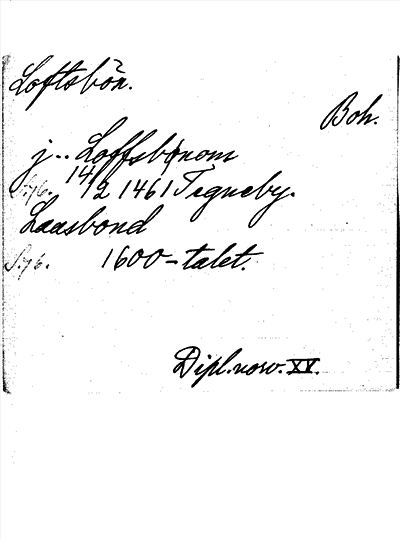 Loftsbön.
?
Boh.
j .. Loffsbønom
S. 76. 14/2 1461 Tegneby.
Laasbond
S. 76. 1600-talet.
Dipl. norv. XV.